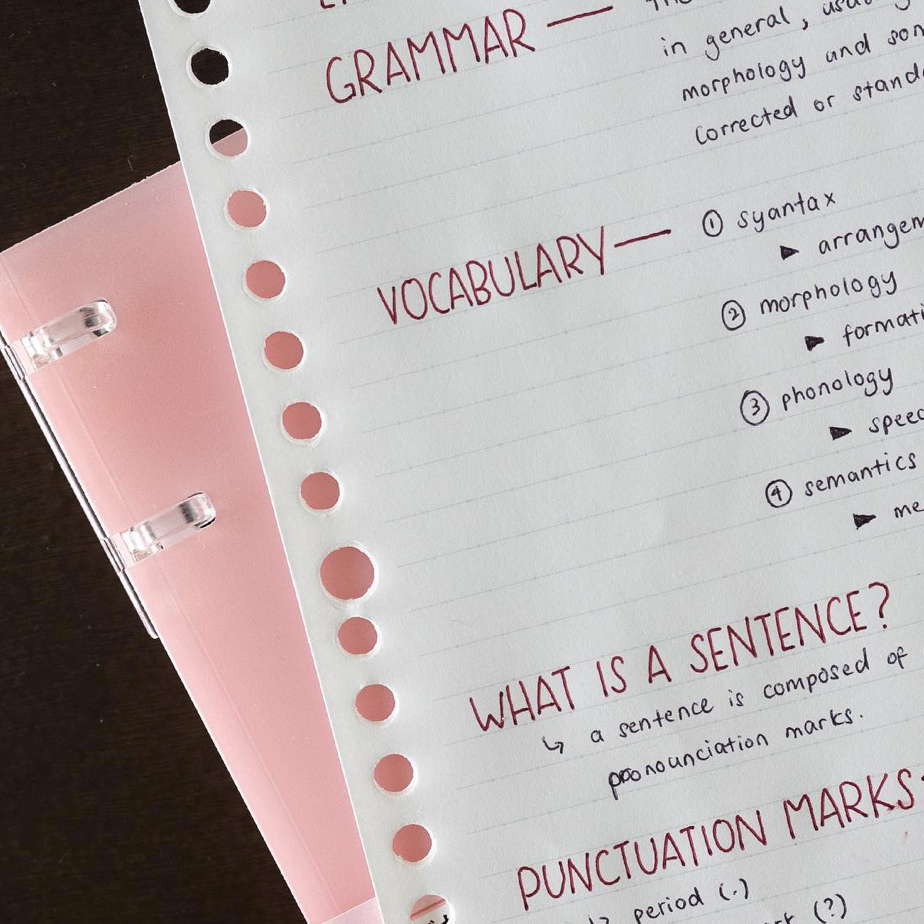 GRAMMAR —
in general,
morphology and
corrected or
VOCABULARY — ① syantax
▶
② morphology
▶
③ phonology
▶
④ semantics
▶
WHAT IS A SENTENCE?
↳ a sentence is composed of
pronounciation marks.
PUNCTUATION MARKS
period (.)
(?)